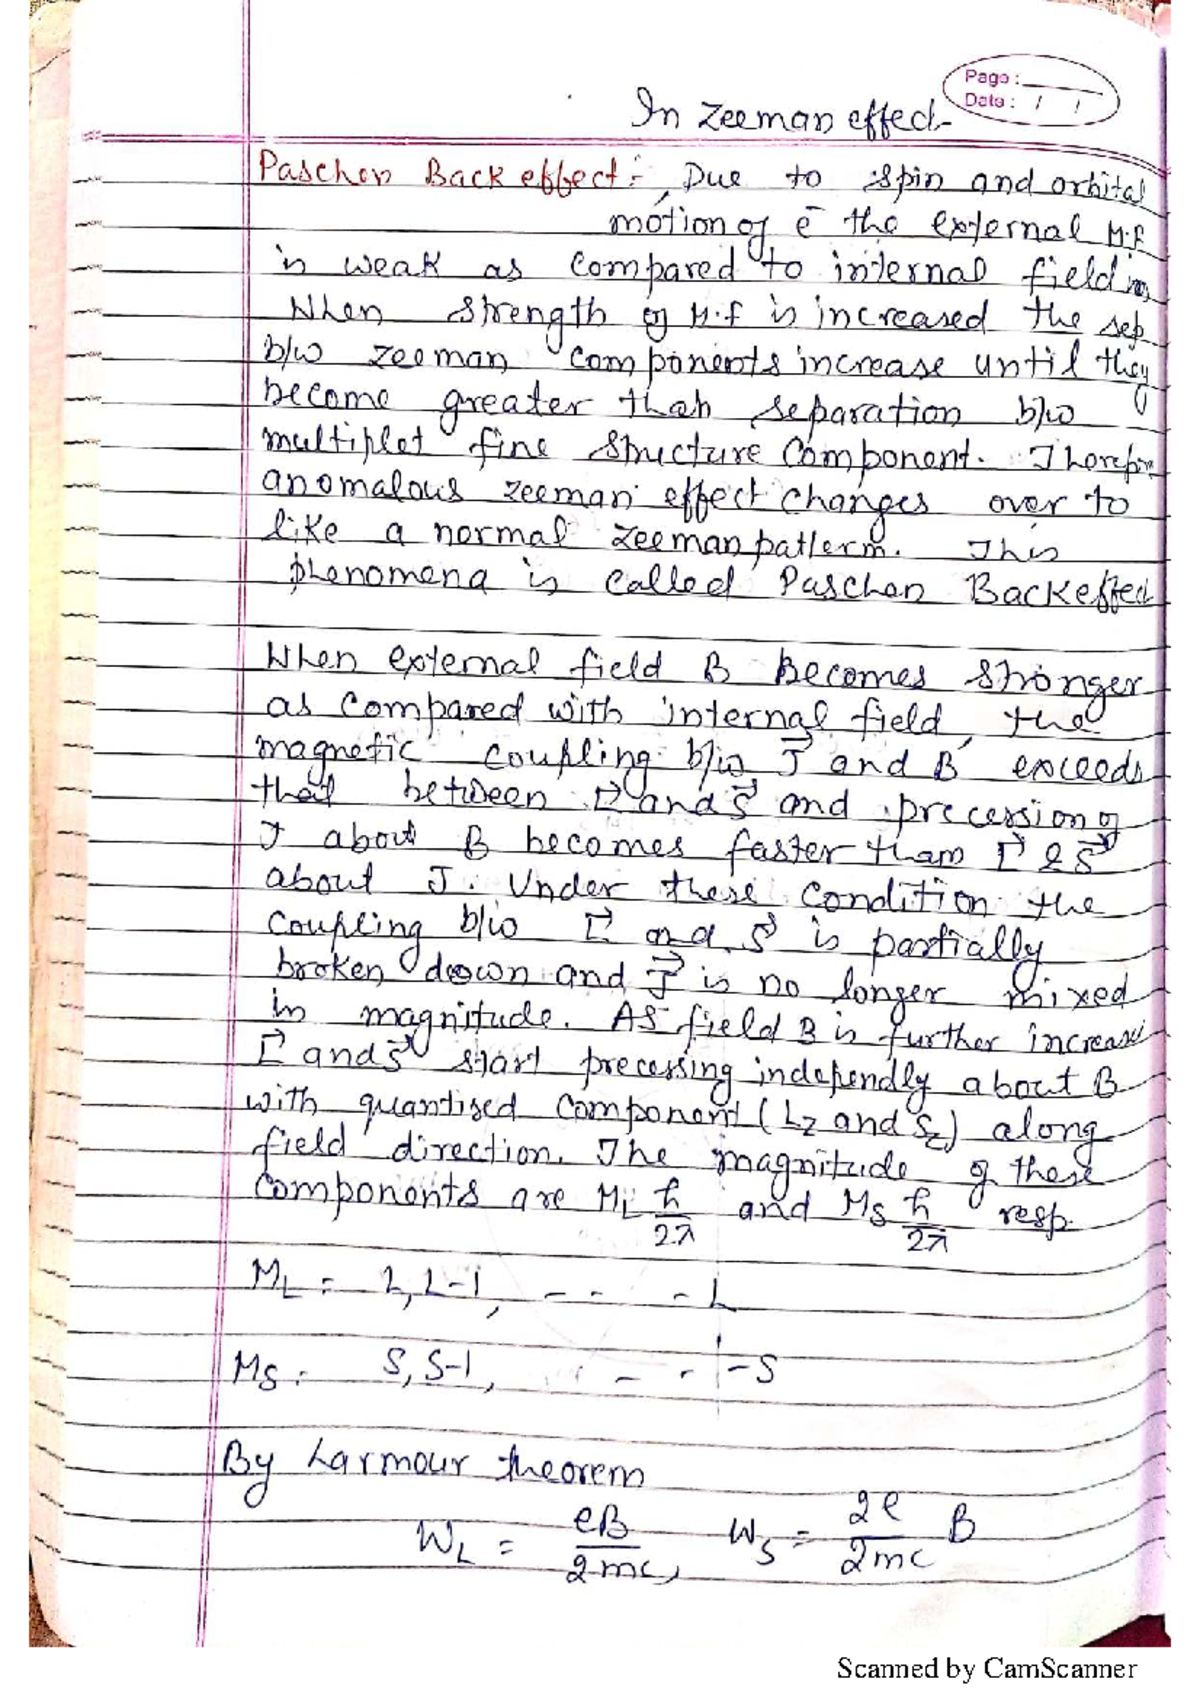 Page :
Date : / /
In Zeeman effect
Paschen Back effect :- Due to spin and orbital
motion of e⁻ the external M.F
is weak as compared to internal field
When strength of M.F is increased the sep
b/w zeeman components increase until they
become greater than separation b/w
multiplet fine structure component. Therefore
anomalous zeeman effect changes over to
like a normal zeeman pattern. This
phenomena is called Paschen Back effect
When external field B Becomes stronger
as compared with internal field, the
magnetic coupling b/w J⃗ and B exceeds
that between L⃗ and S⃗ and precession of
J about B becomes faster than L⃗ & S⃗
about J. Under these condition the
coupling b/w L⃗ and S⃗ is partially
broken down and J⃗ is no longer mixed
in magnitude. As field B is further increase
L⃗ and S⃗ start precessing independly about B
with quantised component (Lz and Sz) along
field direction. The magnitude of these
components are ML ħ/2π and MS ħ/2π resp.
ML = L, L-1, - - - L
MS = S, S-1, - - -S
By Larmour theorem
WL = eB/2mc, WS = 2e/2mc B
Scanned by CamScanner